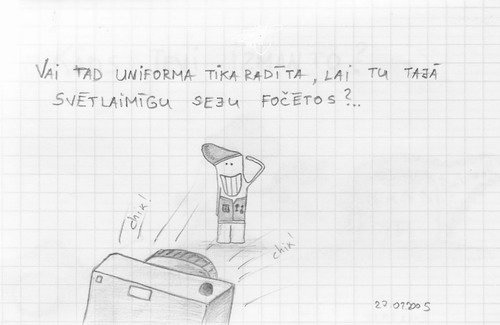 VAI TAD UNIFORMA TIKA RADĪTA, LAI TU TAJĀ
SVĒTLAIMĪGU SEJU FOČĒTOS?..
chik!
chik!
27.01.2005